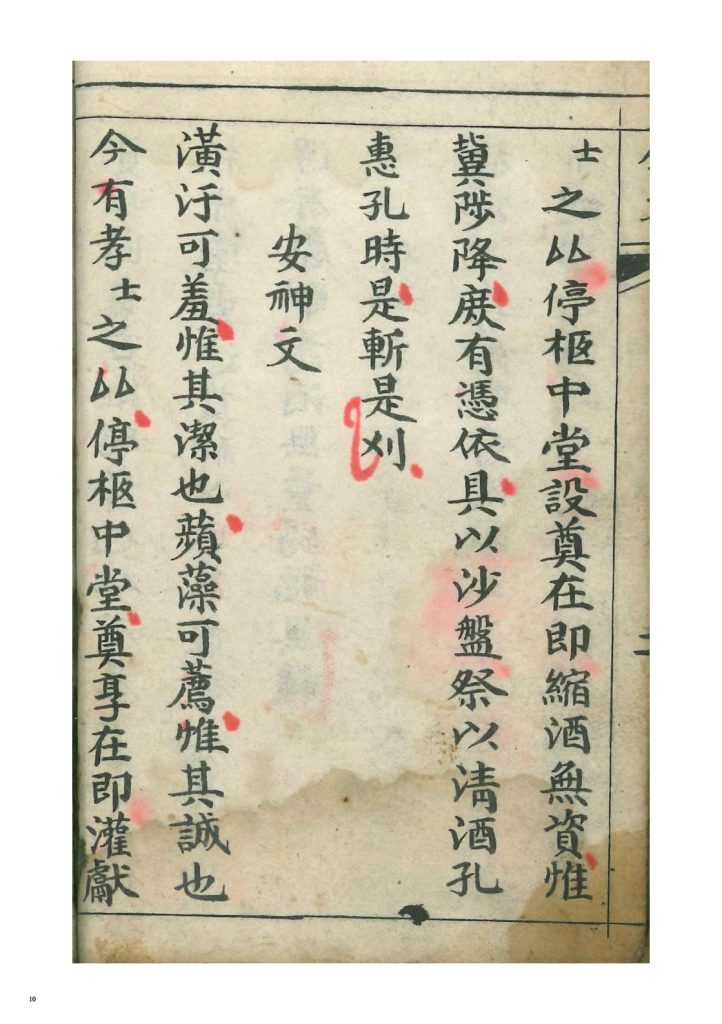 士之厶厶停柩中堂設奠在即縮酒無資惟
冀陟降庶有憑依具以沙盤祭以清酒孔
惠孔時是斬是刈
安神文
潢汙可羞惟其潔也蘋藻可薦惟其誠也
今有孝士之厶厶停柩中堂奠享在即灌獻
10